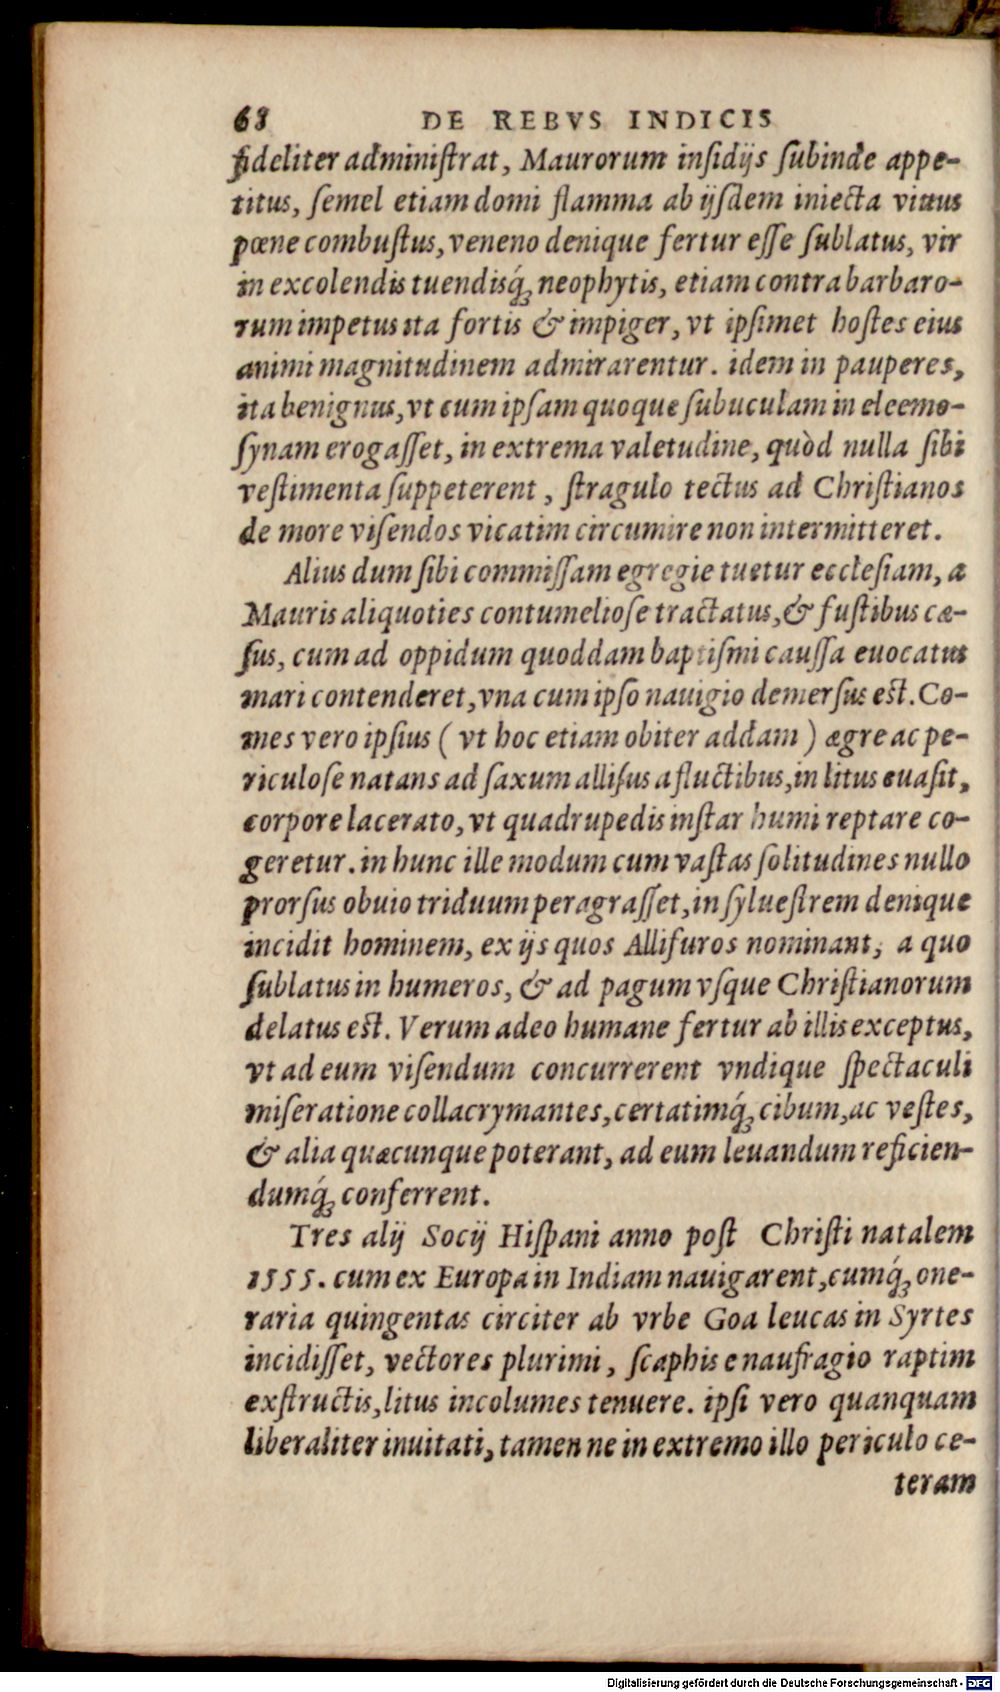 68 DE REBVS INDICIS
fideliter adminiſtrat, Maurorum inſidijs ſubinde appe-
titus, ſemel etiam domi flamma ab ijſdem iniecta viuus
pœne combuſtus, veneno denique fertur eſſe ſublatus, vir
in excolendis tuendisq́ꝫ neophytis, etiam contra barbaro-
rum impetus ita fortis & impiger, vt ipſimet hoſtes eius
animi magnitudinem admirarentur. idem in pauperes,
ita benignus, vt cum ipſam quoque ſubuculam in eleemo-
ſynam erogaſſet, in extrema valetudine, quòd nulla ſibi
veſtimenta ſuppeterent, ſtragulo tectus ad Chriſtianos
de more viſendos vicatim circumire non intermitteret.
Alius dum ſibi commiſſam egregie tuetur eccleſiam, a
Mauris aliquoties contumelioſe tractatus, & fuſtibus cæ-
ſus, cum ad oppidum quoddam baptiſmi cauſſa euocatus
mari contenderet, vna cum ipſo nauigio demerſus eſt. Co-
mes vero ipſius ( vt hoc etiam obiter addam ) ægre ac pe-
riculoſe natans ad ſaxum alliſus a fluctibus, in litus euaſit,
corpore lacerato, vt quadrupedis inſtar humi reptare co-
geretur. in hunc ille modum cum vaſtas ſolitudines nullo
prorſus obuio triduum peragraſſet, in ſylueſtrem denique
incidit hominem, ex ijs quos Allifuros nominant, a quo
ſublatus in humeros, & ad pagum vſque Chriſtianorum
delatus eſt. Verum adeo humane fertur ab illis exceptus,
vt ad eum viſendum concurrerent vndique ſpectaculi
miſeratione collacrymantes, certatimq́ꝫ cibum, ac veſtes,
& alia quæcunque poterant, ad eum leuandum reficien-
dumq́ꝫ conferrent.
Tres alij Socij Hiſpani anno poſt Chriſti natalem
1555. cum ex Europa in Indiam nauigarent, cumq́ꝫ one-
raria quingentas circiter ab vrbe Goa leucas in Syrtes
incidiſſet, vectores plurimi, ſcaphis e naufragio raptim
exſtructis, litus incolumes tenuere. ipſi vero quanquam
liberaliter inuitati, tamen ne in extremo illo periculo ce-
teram
Digitalisierung gefördert durch die Deutsche Forschungsgemeinschaft - DFG